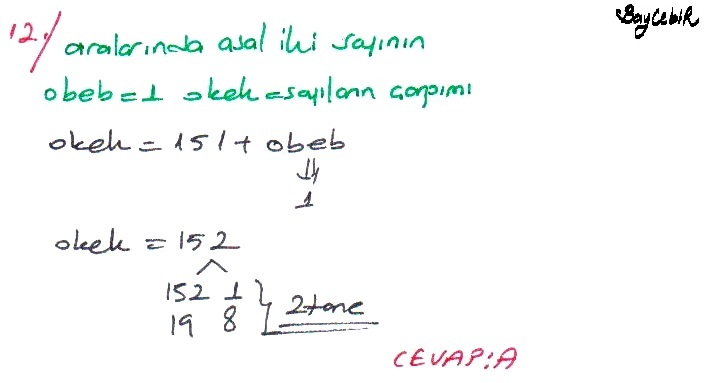 BayCebiR
12.) aralarında asal iki sayının
obeb=1 okek=sayıların çarpımı
okek = 151 + obeb
⇓
1
okek = 152
152 1
19 8 } 2 tane
CEVAP:A